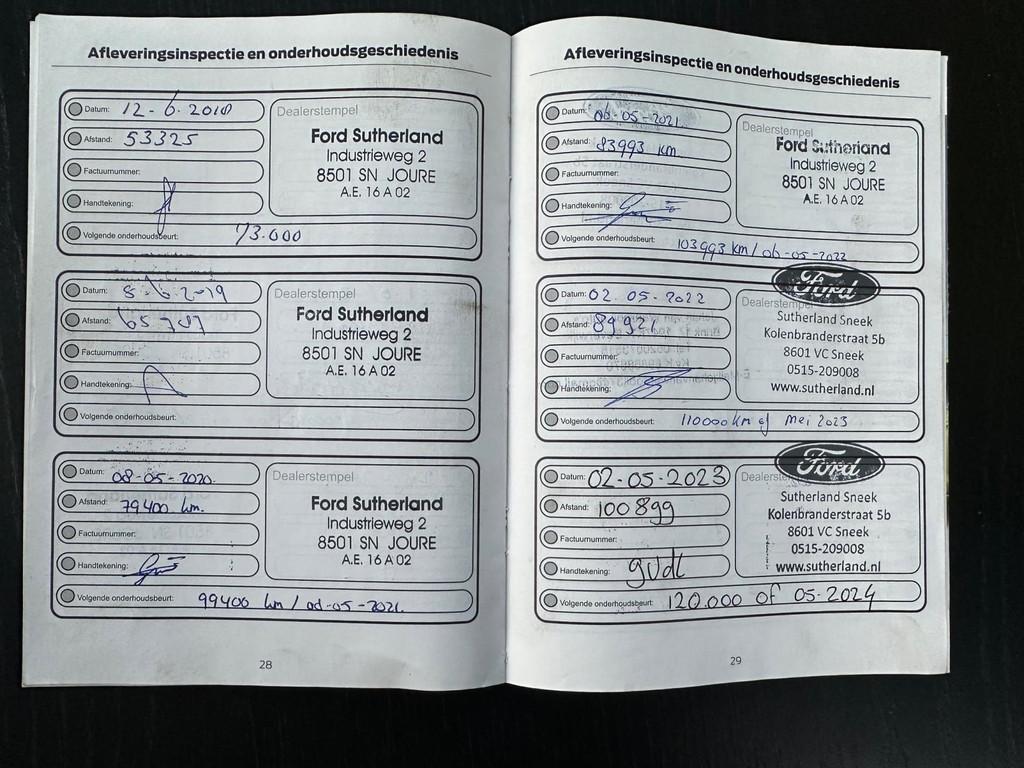 Afleveringsinspectie en onderhoudsgeschiedenis
Datum: 12-6-2018
Afstand: 53325
Factuurnummer:
Handtekening:
Volgende onderhoudsbeurt: 73.000
Dealerstempel
Ford Sutherland
Industrieweg 2
8501 SN JOURE
A.E. 16 A 02
Datum: 8-6-2019
Afstand:
Factuurnummer:
Handtekening:
Volgende onderhoudsbeurt:
Dealerstempel
Ford Sutherland
Industrieweg 2
8501 SN JOURE
A.E. 16 A 02
Datum: 08-05-2020.
Afstand: 79400 km.
Factuurnummer:
Handtekening:
Volgende onderhoudsbeurt: 99400 km / 08-05-2021.
Dealerstempel
Ford Sutherland
Industrieweg 2
8501 SN JOURE
A.E. 16 A 02
28
Afleveringsinspectie en onderhoudsgeschiedenis
Datum: 06-05-2021.
Afstand: 83993 km
Factuurnummer:
Handtekening:
Volgende onderhoudsbeurt: 103993 km / 06-05-2022
Dealerstempel
Ford Sutherland
Industrieweg 2
8501 SN JOURE
A.E. 16 A 02
Datum: 02.05-2022
Afstand: 89921
Factuurnummer:
Handtekening:
Volgende onderhoudsbeurt: 110000 km of mei 2023
Ford
Dealerstempel
Sutherland Sneek
Kolenbranderstraat 5b
8601 VC Sneek
0515-209008
www.sutherland.nl
Datum: 02-05-2023
Afstand: 100899
Factuurnummer:
Handtekening: gvdl
Volgende onderhoudsbeurt: 120.000 of 05-2024
Ford
Dealerst
Sutherland Sneek
Kolenbranderstraat 5b
8601 VC Sneek
0515-209008
www.sutherland.nl
29